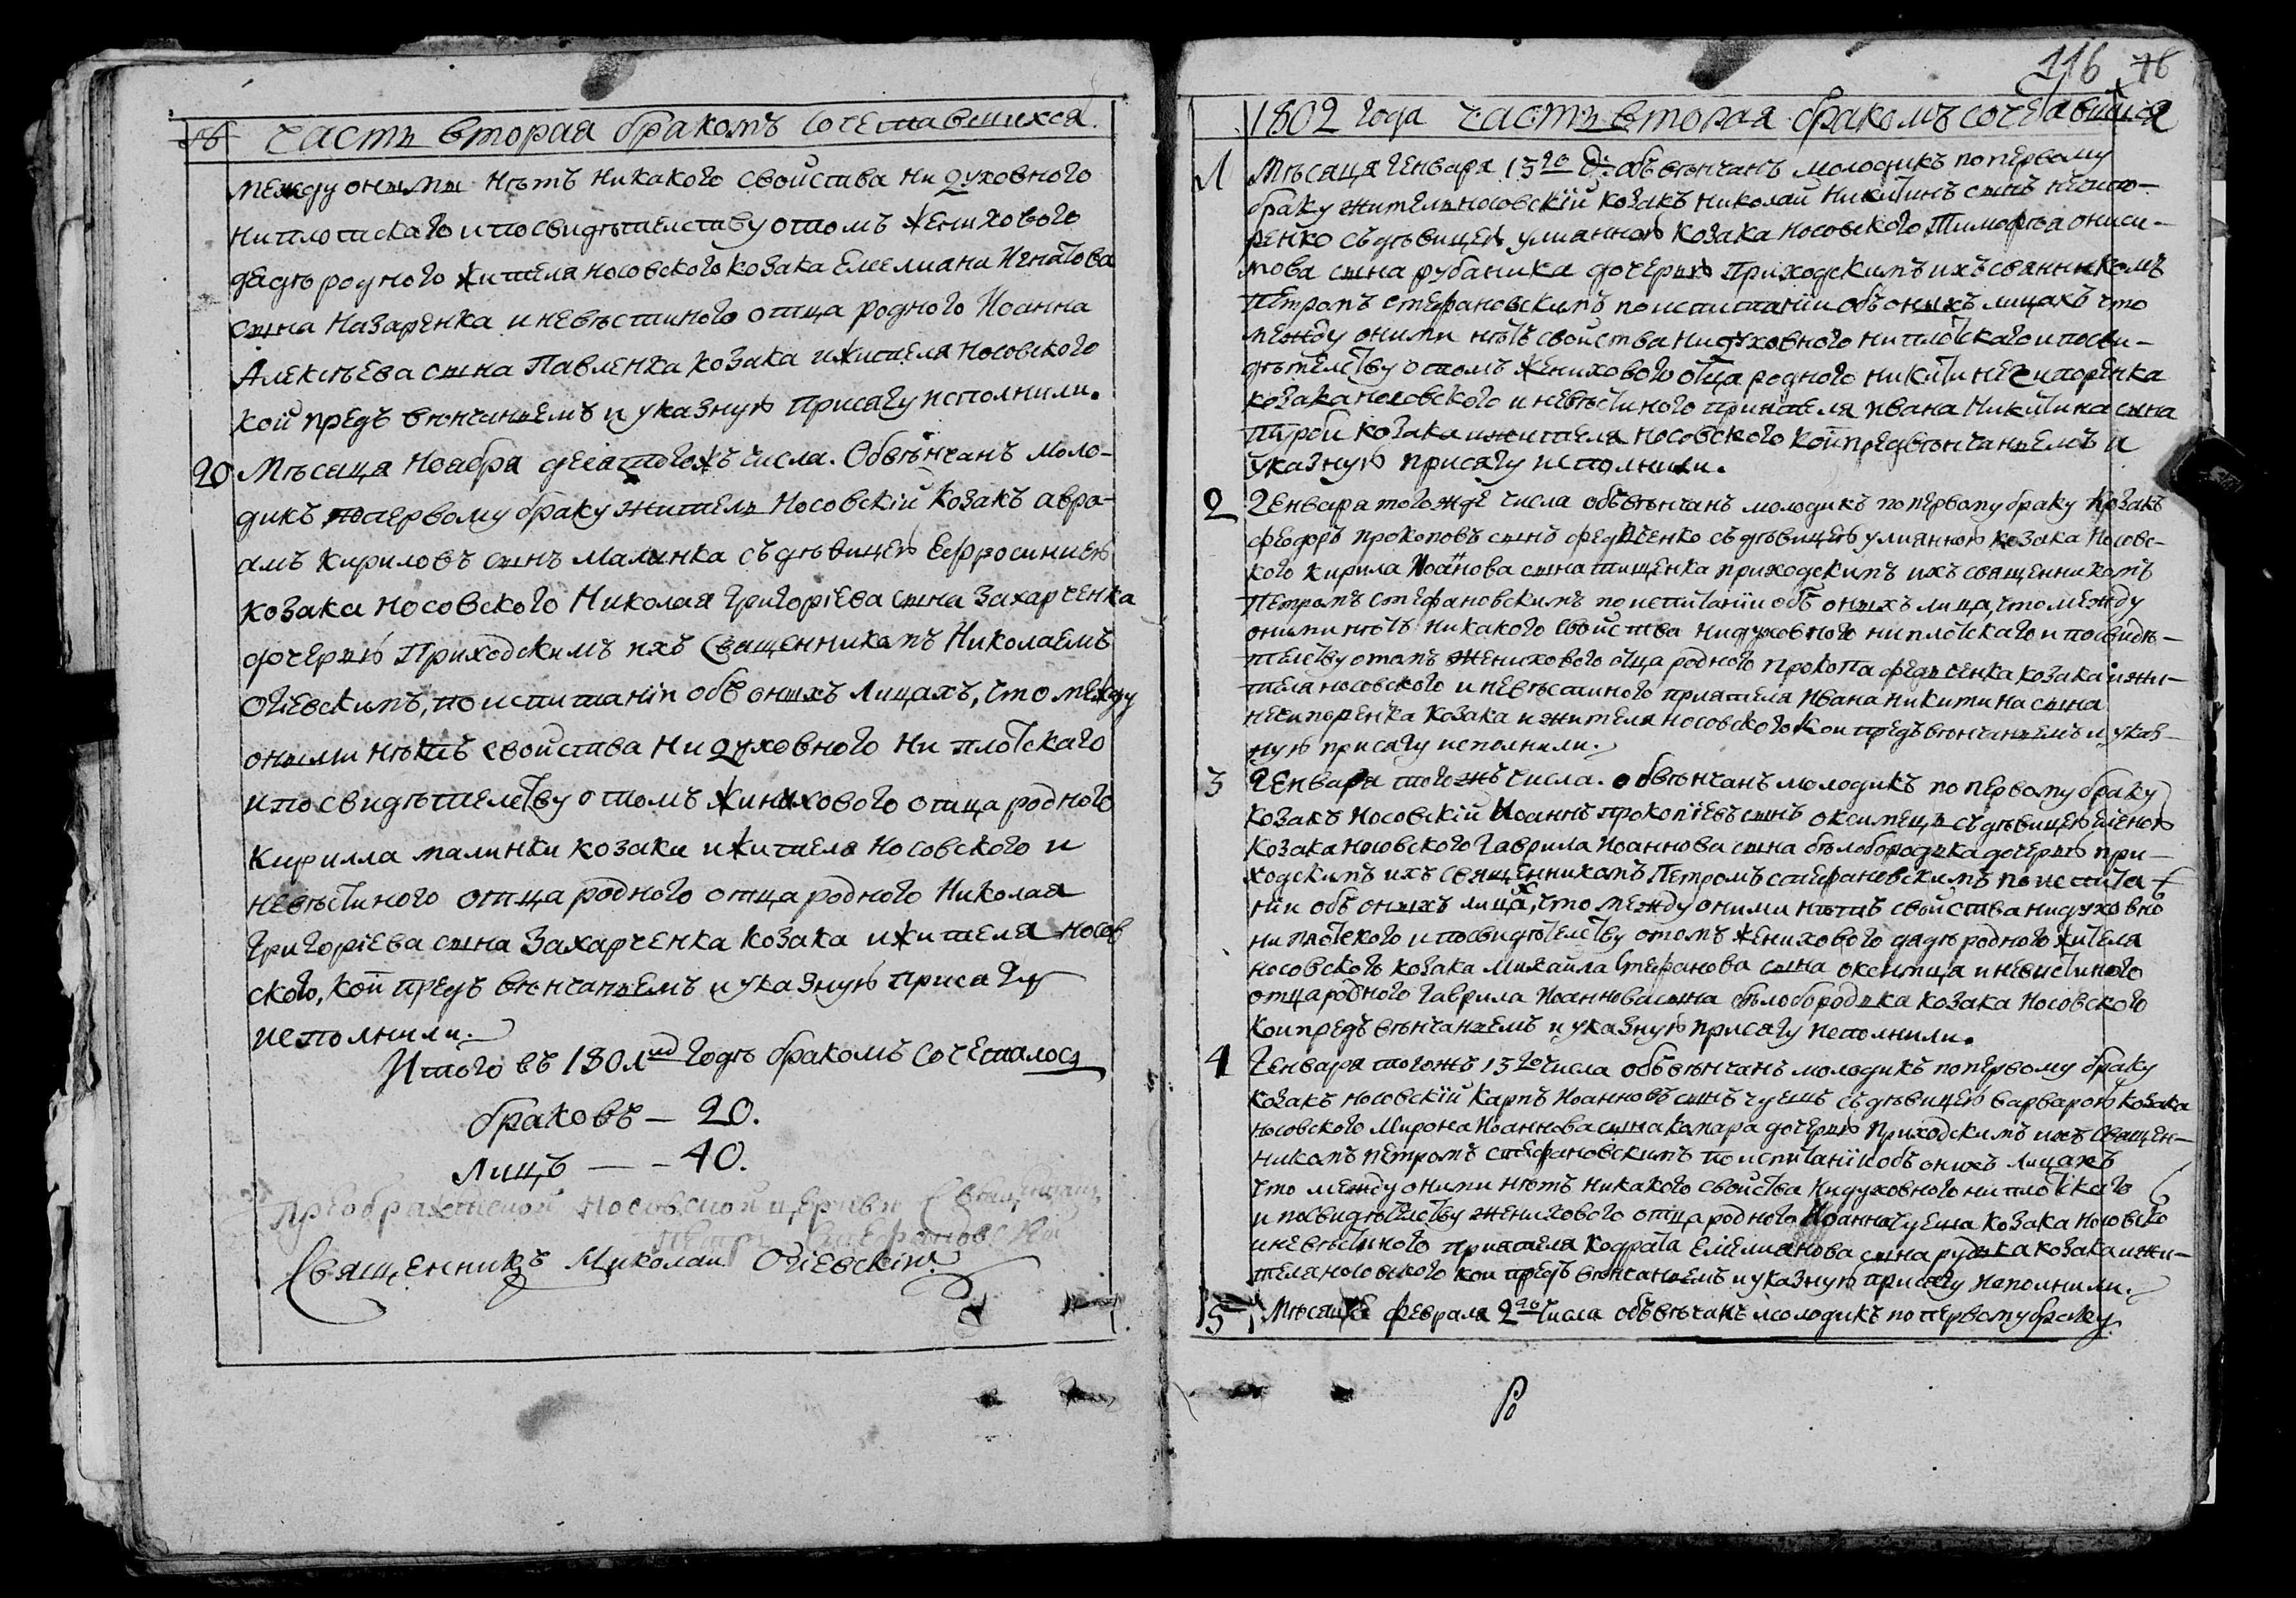 часть вторая бракомъ сочетавшихся
между оными нѣтъ никакого свойства ни духовного
ни плотскаго и по свидѣтелству о томъ женихового
дядѣ родного жителя носовского козака Емелиана Игнатова
сына Назаренка и невѣстиного отца родного Иоанна
Алексѣева сына Павленка козака и жителя носовского
кои предъ вѣнчаньемъ и указную присягу исполнили.
20 Мѣсяца Ноабра десятогожъ числа. Обвѣнчанъ моло-
дикъ попервому браку житель Носовскій козакъ авра-
амъ Кириловъ сынъ Малинка съ дѣвицею Ефросиниею
козака носовского Николая Григоріева сына Захарченка
дочерью Приходскимъ ихъ Священникомъ Николаемъ
Огіевскимъ, по испитаніи объ онихъ лицахъ, что между
оными нѣтъ свойства ни духовного ни плотскаго
и по свидѣтелству о томъ жинихового отца родного
Кирилла малинки козака и жителя Носовского и
невѣстиного отца родного отца родного Николая
Григоріева сына Захарченка козака и жителя носов
ского, кои предъ вѣнчаньемъ и указную присягу
исполнили.
Итого въ 1801мъ годѣ бракомъ сочеталося
браковъ — 20.
лицъ — — 40.
Преображенской Носовской церкви Священникъ
Петръ Стефановскій
Священникъ Николай Огіевскій
116 76
1802 года часть вторая бракомъ сочетавшися
1 Мѣсяца Генваря 13го д: обвѣнчанъ молодикъ попервому
браку житель носовскій козакъ николай Никитинъ сынъ нечипо-
ренко съ дѣвицею улианною козака носовского Тимофѣа ониси-
мова сына рубаника дочерью Приходскимъ ихъ свяннкомъ
Петромъ Стефановскимъ по испитаніи объ онихъ лицахъ что
между оними нѣтъ свойства ни духовного ни плотскаго и по сви-
дѣтелству о томъ женихового отца родного никити нечипоренка
козака носовского и невѣстиного приятеля ивана Никитина сына
козака и жителя носовского кои предъ вѣнчаньемъ и
указную присягу исполнили.
2 Генвара тогожде числа обвѣнчанъ молодикъ попервому браку козакъ
феодоръ прокоповъ сынъ федченко съ дѣвицею улиянною козака Носовс-
кого Кирила Иоаннова сына тищенка приходскимъ ихъ священникомъ
Петромъ Стефановскимъ по испитаніи объ онихъ лица, что между
оними нѣтъ никакого свойства ни духовного ни плотскаго и по свидѣ-
телству о томъ женихового отца родного прокопа федченка козака и жи-
теля носовского и невѣстиного приятеля ивана никитина сына
нечипоренка козака и жителя носовского кои предъ вѣнчаньемъ и указ-
ную присягу исполнили.
3 Генваря тогожъ числа. обвѣнчанъ молодикъ попервому браку
козакъ носовскій Иоаннъ прокопіевъ сынъ оксимець съ дѣвицею еленою
козака носовского Гаврила Иоаннова сына бѣлобородька дочерью при-
ходскимъ ихъ священникомъ Петромъ стефановскимъ по испита
ніи объ онихъ лицах, что между оними нѣтъ свойства ни духовно
ни плотского и по свидѣтелству о томъ женихового дядѣ родного жителя
носовского козака михаила Стефанова сына оксимца и невистиного
отца родного Гаврила Иоаннова сына бѣлобородька козака Носовского
кои предъ вѣнчаньемъ и указную присягу исполнили.
4 Генваря тогожъ 13го числа обвѣнчанъ молодикъ попервому браку
козакъ носовскій Карпъ Иоанновъ сынъ чуешъ съ дѣвицею варварою козака
носовского Мирона Иоаннова сына комара дочерью Приходскимъ ихъ Священ-
никомъ петромъ стефановскимъ по испитаніи объ онихъ лицахъ
что между оними нѣтъ никакого свойства ни духовного ни плотскаго
и по свидѣтелству женихового отца родного Иоанна чуеша козака носовско
и невѣстиного приятеля кодрата Емелианова сына рудька козака и жи-
теля носовского кои предъ вѣнчаньемъ и указную присягу исполнили.
5 Мѣсяца февраля 2го числа обвѣнчанъ молодикъ попервому браку